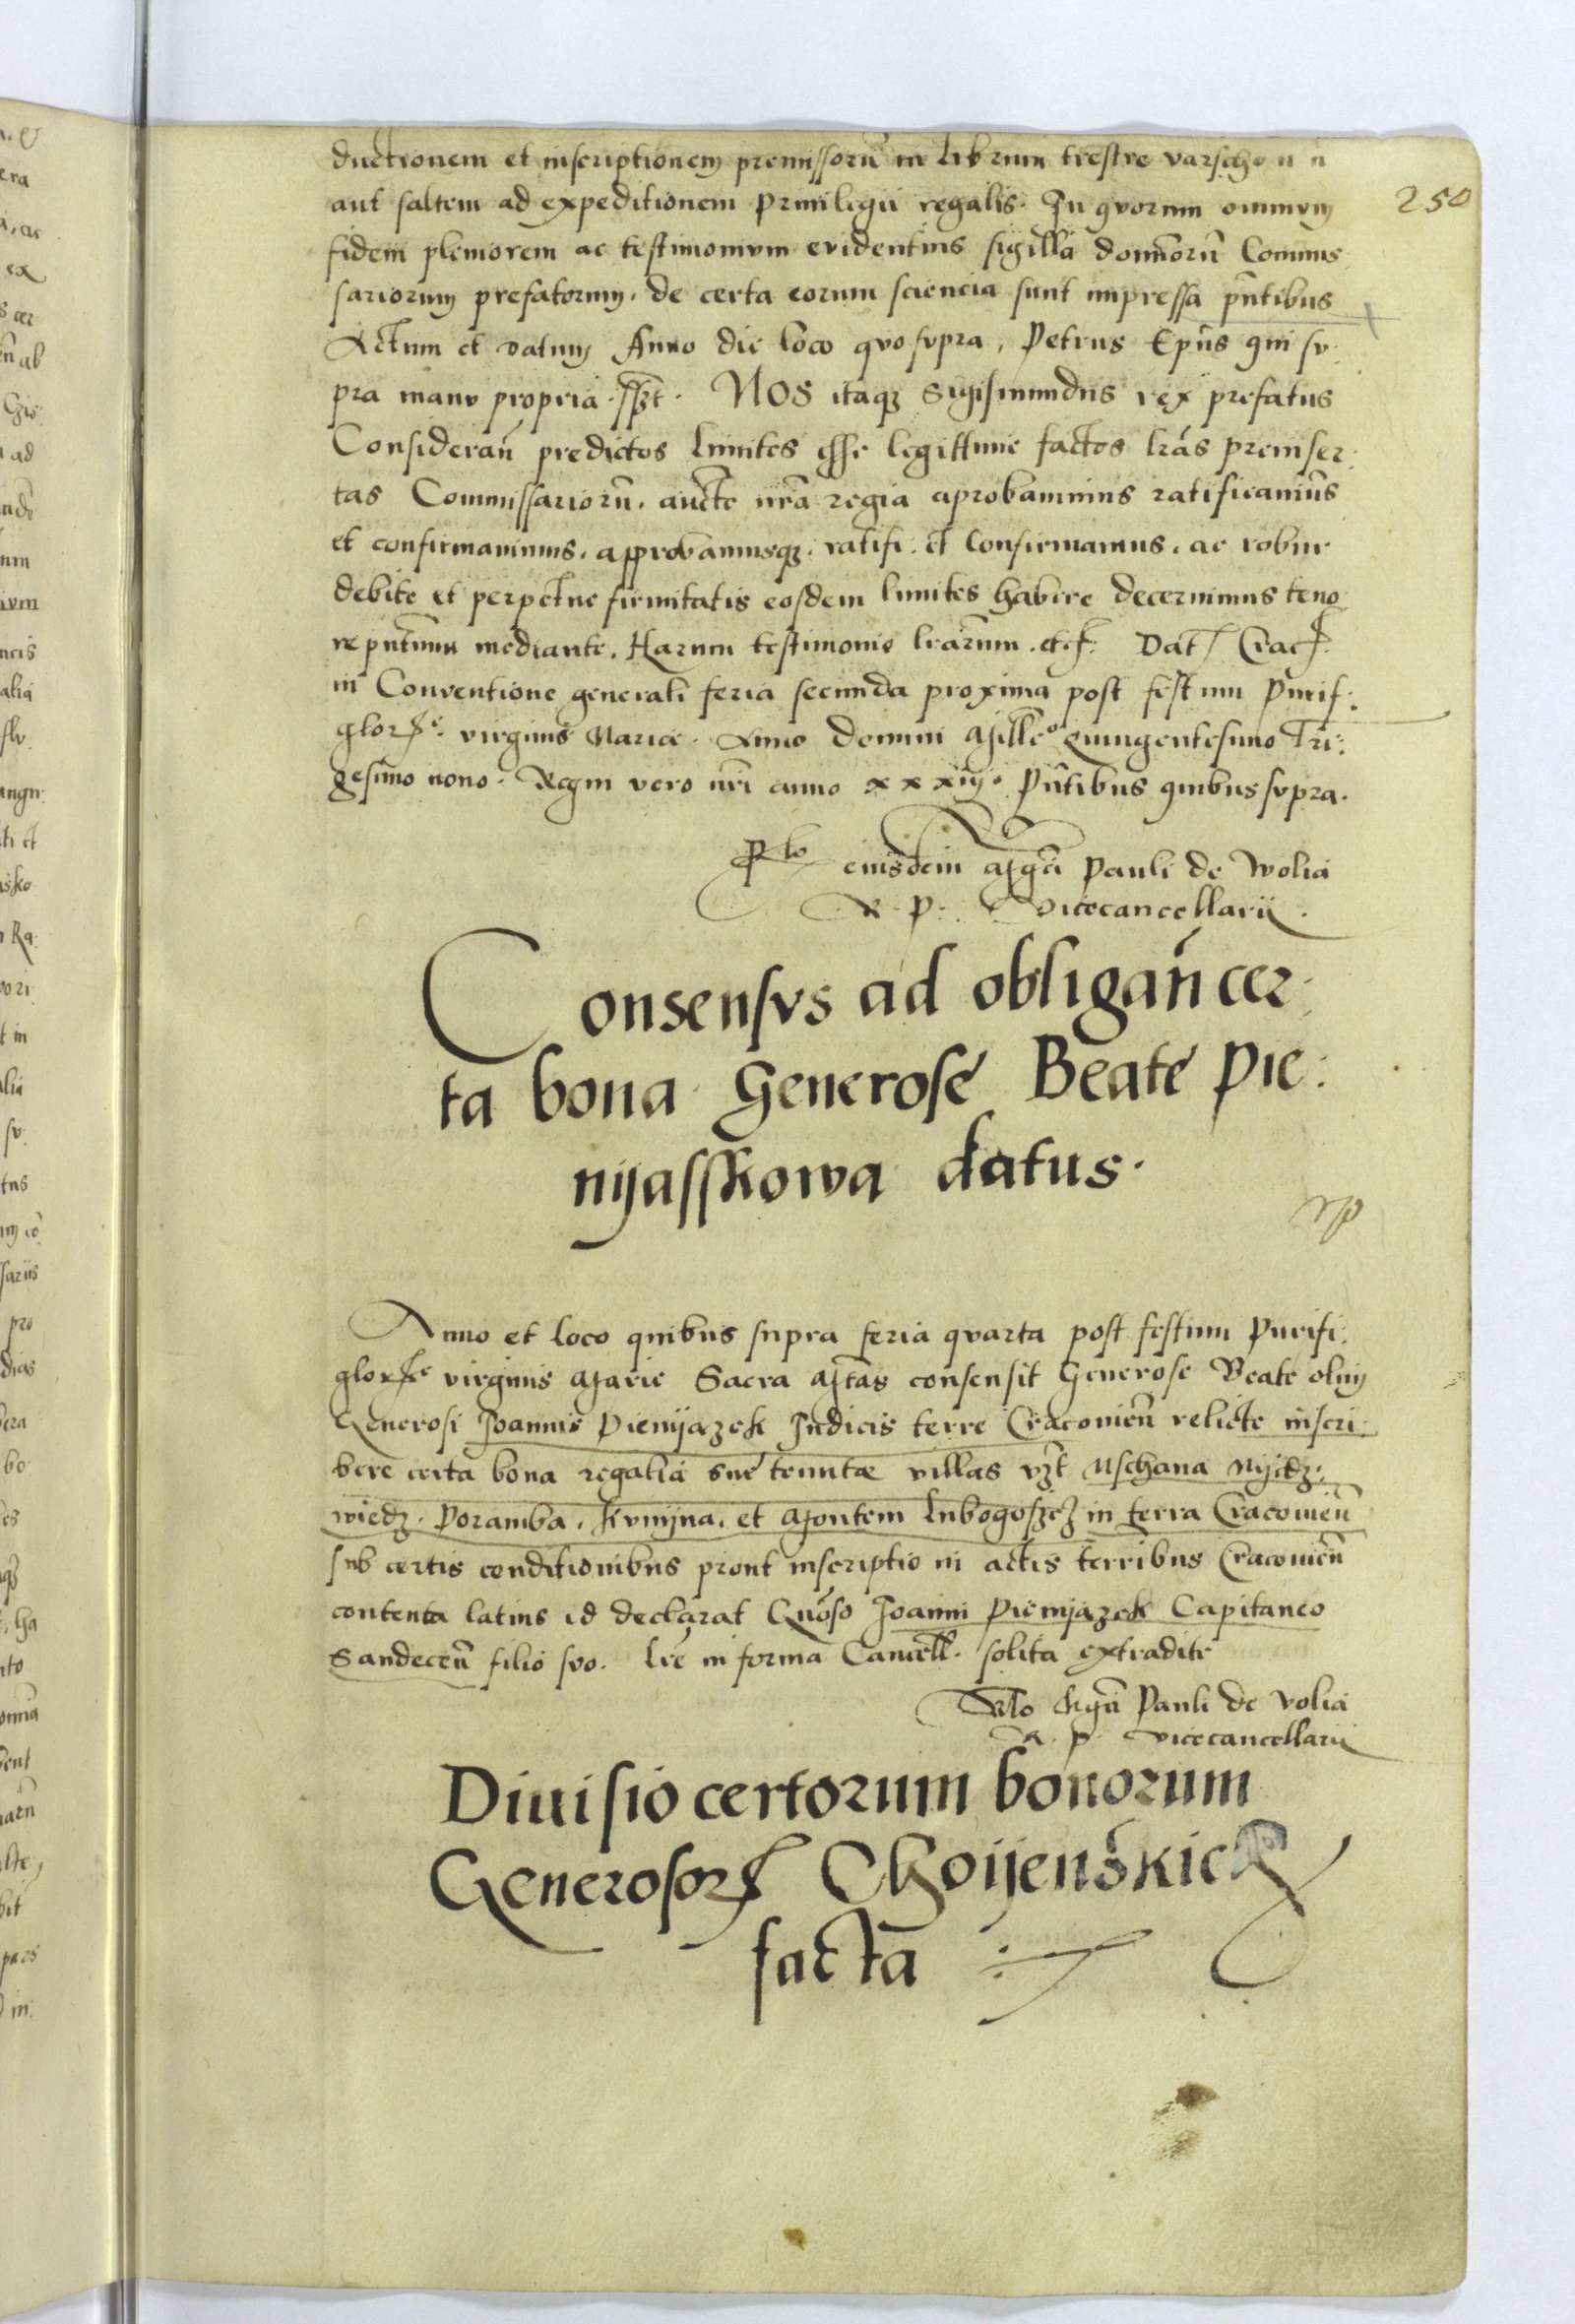 ductionem et inscriptionem premissorū in librum trestre varscho
250
aut saltem ad expeditionem privilegii regalis. In quorum omnium
fidem pleniorem ac testimonium evidentius sigilla dominorū Commis
sariorum prefatorum. de certa eorum sciencia sunt impressa pn̄tibus
Actum et datum Anno die loco quo supra, Petrus Ep̄us qui su
pra manu propria sszt. NOS itaq; Sigismundus rex prefatus
Consideran̄ predictos limites esse legittime factos lr̄as preinser
tas Commissariorū. aucte nr̄a regia aprobavimus ratificavimus
et confirmavimus. approbamusq; ratifi. et Confirmamus. ac robur
debite et perpetue firmitatis eosdem limites habere decernimus teno
re pn̄tium mediante. Harum testimonio lr̄arum. etc. Dat Crac.
in Conventione generali feria secunda proxima post festum Purif:
glorse virginis Marie. Anno domini Mille° Quingentesimo Tri:
gesimo nono. Regni vero nr̄i anno xxxiij. Pn̄tibus quibus supra.
Rlo eiusdem Mgci Pauli de Wolia
R. P. Vicecancellarii.
Consensus ad obligan̄ cer
ta bona Generose Beate Pie:
nijasskowa datus.
Anno et loco quibus supra feria quarta post festum Purifi:
glorse virginis Marie Sacra Mtas consensit Generose Beate olim
Generosi Joannis Pienijazek Judicis terre Cracovien̄ relicte inscri
bere certa bona regalia sue tenutæ villas vzt Mschana Nijedz:
wiedz. Poramba. Kvnijna. et Montem Lubogoszcz in terra Cracovien̄
sub certis conditionibus prout inscriptio in actis terribus Cracovien̄
contenta latius id declarat Gnōso Joanni Pienijazek Capitaneo
Sandecen̄ filio suo. Lr̄e in forma Cancell. solita extradite
Rlo Mgci Pauli de Volia
R. P. vicecancellarii
Divisio certorum bonorum
Generosorum Choijenskich
facta